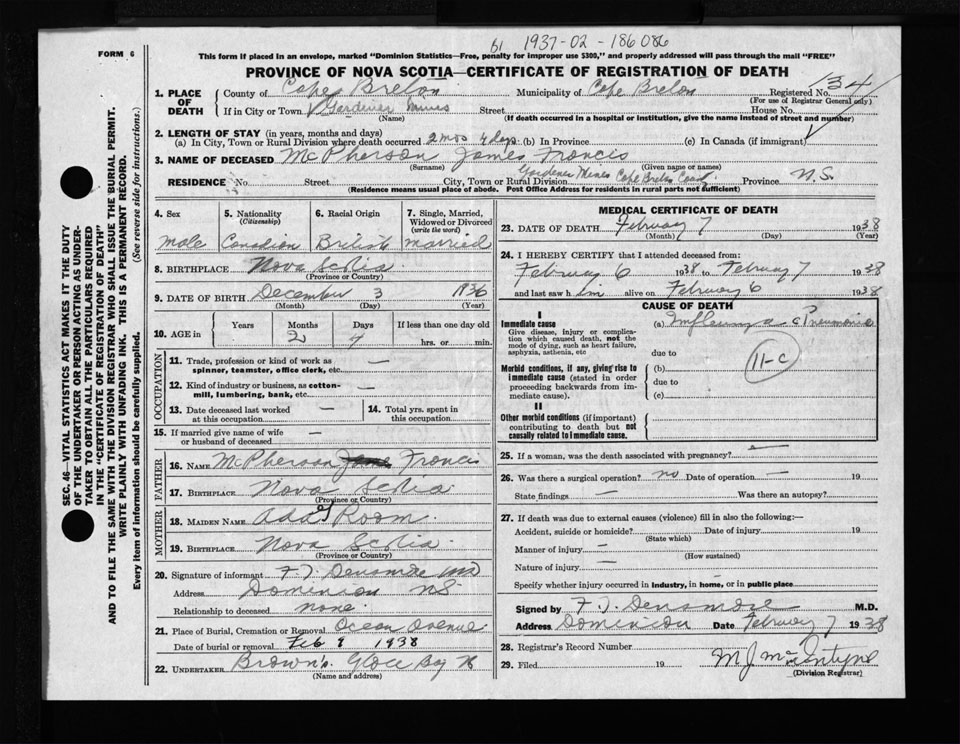 61 1937-02-186086
FORM 6
This form if placed in an envelope, marked "Dominion Statistics—Free, penalty for improper use $300," and properly addressed will pass through the mail "FREE"
PROVINCE OF NOVA SCOTIA—CERTIFICATE OF REGISTRATION OF DEATH
SEC. 46—VITAL STATISTICS ACT MAKES IT THE DUTY
OF THE UNDERTAKER OR PERSON ACTING AS UNDER-
TAKER TO OBTAIN ALL THE PARTICULARS REQUIRED
IN THE "CERTIFICATE OF REGISTRATION OF DEATH"
AND TO FILE THE SAME WITH THE DIVISION REGISTRAR WHO SHALL ISSUE THE BURIAL PERMIT.
WRITE PLAINLY WITH UNFADING INK. THIS IS A PERMANENT RECORD.
Every item of information should be carefully supplied. (See reverse side for instructions.)
1. PLACE OF DEATH
County of Cape Breton Municipality of Cape Breton Registered No. 134
(For use of Registrar General only)
If in City or Town Gardener Mines Street House No.
(Name) (If death occurred in a hospital or institution, give the name instead of street and number)
2. LENGTH OF STAY (in years, months and days)
(a) In City, Town or Rural Division where death occurred 2 mos 4 days (b) In Province (c) In Canada (if immigrant)
3. NAME OF DECEASED McPherson James Francis
(Surname) (Given name or names)
RESIDENCE No. Street City, Town or Rural Division Gardener Mines Cape Breton County Province N.S.
(Residence means usual place of abode. Post Office Address for residents in rural parts not sufficient)
4. Sex 5. Nationality (Citizenship) 6. Racial Origin 7. Single, Married, Widowed or Divorced (write the word)
Male Canadian British married
8. BIRTHPLACE Nova Scotia
(Province or Country)
9. DATE OF BIRTH December 3 1936
(Month) (Day) (Year)
10. AGE in Years Months Days If less than one day old
2 4 hrs. or min.
OCCUPATION
11. Trade, profession or kind of work as
spinner, teamster, office clerk, etc. —
12. Kind of industry or business, as cotton-
mill, lumbering, bank, etc. —
13. Date deceased last worked
at this occupation —
14. Total yrs. spent in
this occupation
15. If married give name of wife
or husband of deceased —
FATHER
16. NAME McPherson Jane Francis
17. BIRTHPLACE Nova Scotia
(Province or Country)
MOTHER
18. MAIDEN NAME Ada Room
19. BIRTHPLACE Nova Scotia
(Province or Country)
20. Signature of informant F. J. Densmore MD
Address Dominion NS
Relationship to deceased none.
21. Place of Burial, Cremation or Removal Ocean Avenue
Date of burial or removal Feb 9 1938
22. UNDERTAKER Brown's Glace Bay
(Name and address)
MEDICAL CERTIFICATE OF DEATH
23. DATE OF DEATH February 7 1938
(Month) (Day) (Year)
24. I HEREBY CERTIFY that I attended deceased from:
February 6 1938 to February 7 1938
and last saw him alive on February 6 1938
CAUSE OF DEATH
I
Immediate cause
Give disease, injury or complica-
tion which caused death, not the
mode of dying, such as heart failure,
asphyxia, asthenia, etc
(a) Influenza c Pneumonia
due to
11-C
Morbid conditions, if any, giving rise to
immediate cause (stated in order
proceeding backwards from im-
mediate cause).
(b)
due to
(c)
II
Other morbid conditions (if important)
contributing to death but not
causally related to immediate cause.
25. If a woman, was the death associated with pregnancy? —
26. Was there a surgical operation? no Date of operation — 19
State findings — Was there an autopsy?
27. If death was due to external causes (violence) fill in also the following:—
Accident, suicide or homicide? Date of injury 19
(State which)
Manner of injury —
(How sustained)
Nature of injury —
Specify whether injury occurred in industry, in home, or in public place
Signed by F. J. Densmore M.D.
Address Dominion Date February 7 1938
28. Registrar's Record Number
29. Filed 19 M J McIntyre
(Division Registrar)